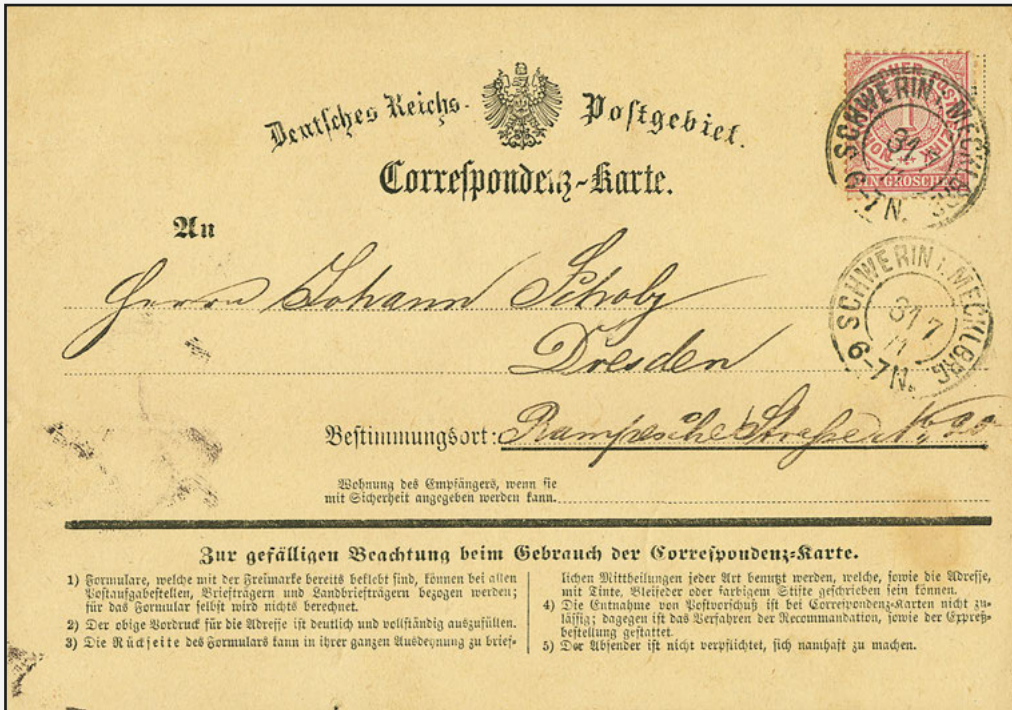 Deutsches Reichs-Postgebiet.
Correspondenz-Karte.
EIN GROSCHEN
1
SCHWERIN i. MECKLBRG
31 7
6-7N.
An
Herrn Johann
SCHWERIN i. MECKLBRG
31 7
71
6-7N.
Dresden
Bestimmungsort: Rampesche Straße No 20
Wohnung des Empfängers, wenn sie
mit Sicherheit angegeben werden kann.
Zur gefälligen Beachtung beim Gebrauch der Correspondenz-Karte.
1) Formulare, welche mit der Freimarke bereits beklebt sind, können bei allen
Postaufgabestellen, Briefträgern und Landbriefträgern bezogen werden;
für das Formular selbst wird nichts berechnet.
2) Der obige Vordruck für die Adresse ist deutlich und vollständig auszufüllen.
3) Die Rückseite des Formulars kann in ihrer ganzen Ausdehnung zu brief-
lichen Mittheilungen jeder Art benutzt werden, welche, sowie die Adresse,
mit Tinte, Bleifeder oder farbigem Stifte geschrieben sein können.
4) Die Entnahme von Postvorschuß ist bei Correspondenz-Karten nicht zu-
lässig; dagegen ist das Verfahren der Recommandation, sowie der Expreß-
bestellung gestattet.
5) Der Absender ist nicht verpflichtet, sich namhaft zu machen.